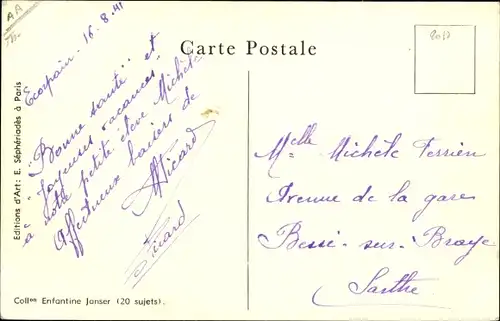 AA
Ecorpain. 16.8.41
Carte Postale
"Bonne santé" et
"Joyeuses vacances,"
à notre petite élève Michèle
Affectueux baisers de
Picard
Picard
Melle Michèle Terrien
Avenue de la gare
Bessé-sur-Braye
Sarthe
Editions d'Art: E. Séphériadès à Paris
Collon Enfantine Janser (20 sujets).